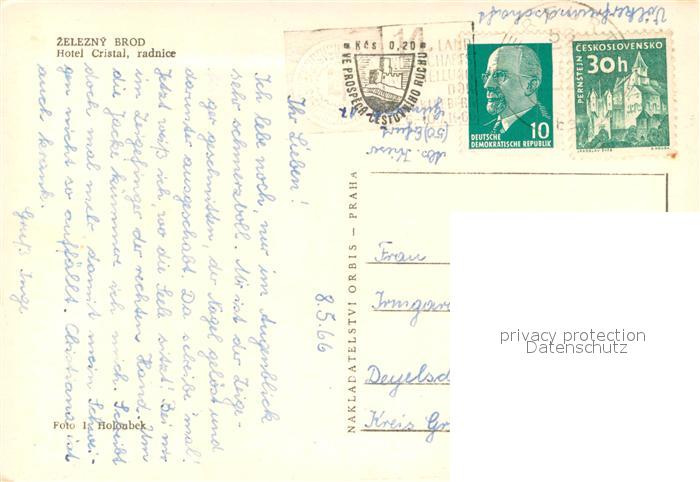 ŽELEZNÝ BROD
Hotel Cristal, radnice
Foto I. Holoubek
NAKLADATELSTVÍ ORBIS — PRAHA
Kčs 0,20
VE PROSPĚCH CESTOVNÍHO RUCHU
14
DEUTSCHE
DEMOKRATISCHE REPUBLIK
10
ČESKOSLOVENSKO
30h
PERNŠTEJN
Völkerfreundschaft
8.5.66
Ihr Lieben!
Ich lebe noch, nur im Augenblick
sehr schmerzvoll. Mir ist der Zeige-
finger geschnitten, der Nagel gelöst und
darunter ausgeschabt. Da schreibe mal!
Jetzt weiß ich, wo die Seele sitzt! Bei mir
im Zeigefinger der rechten Hand. Um
die Jacke kümmere ich mich. Schreibt
doch mal mehr damit mein Schwei-
gen nicht so auffällt. Christiane ist
auch krank.
Gruß Inge
Frau
Irmgar
Deyelsd
Kreis Gr
privacy protection
Datenschutz